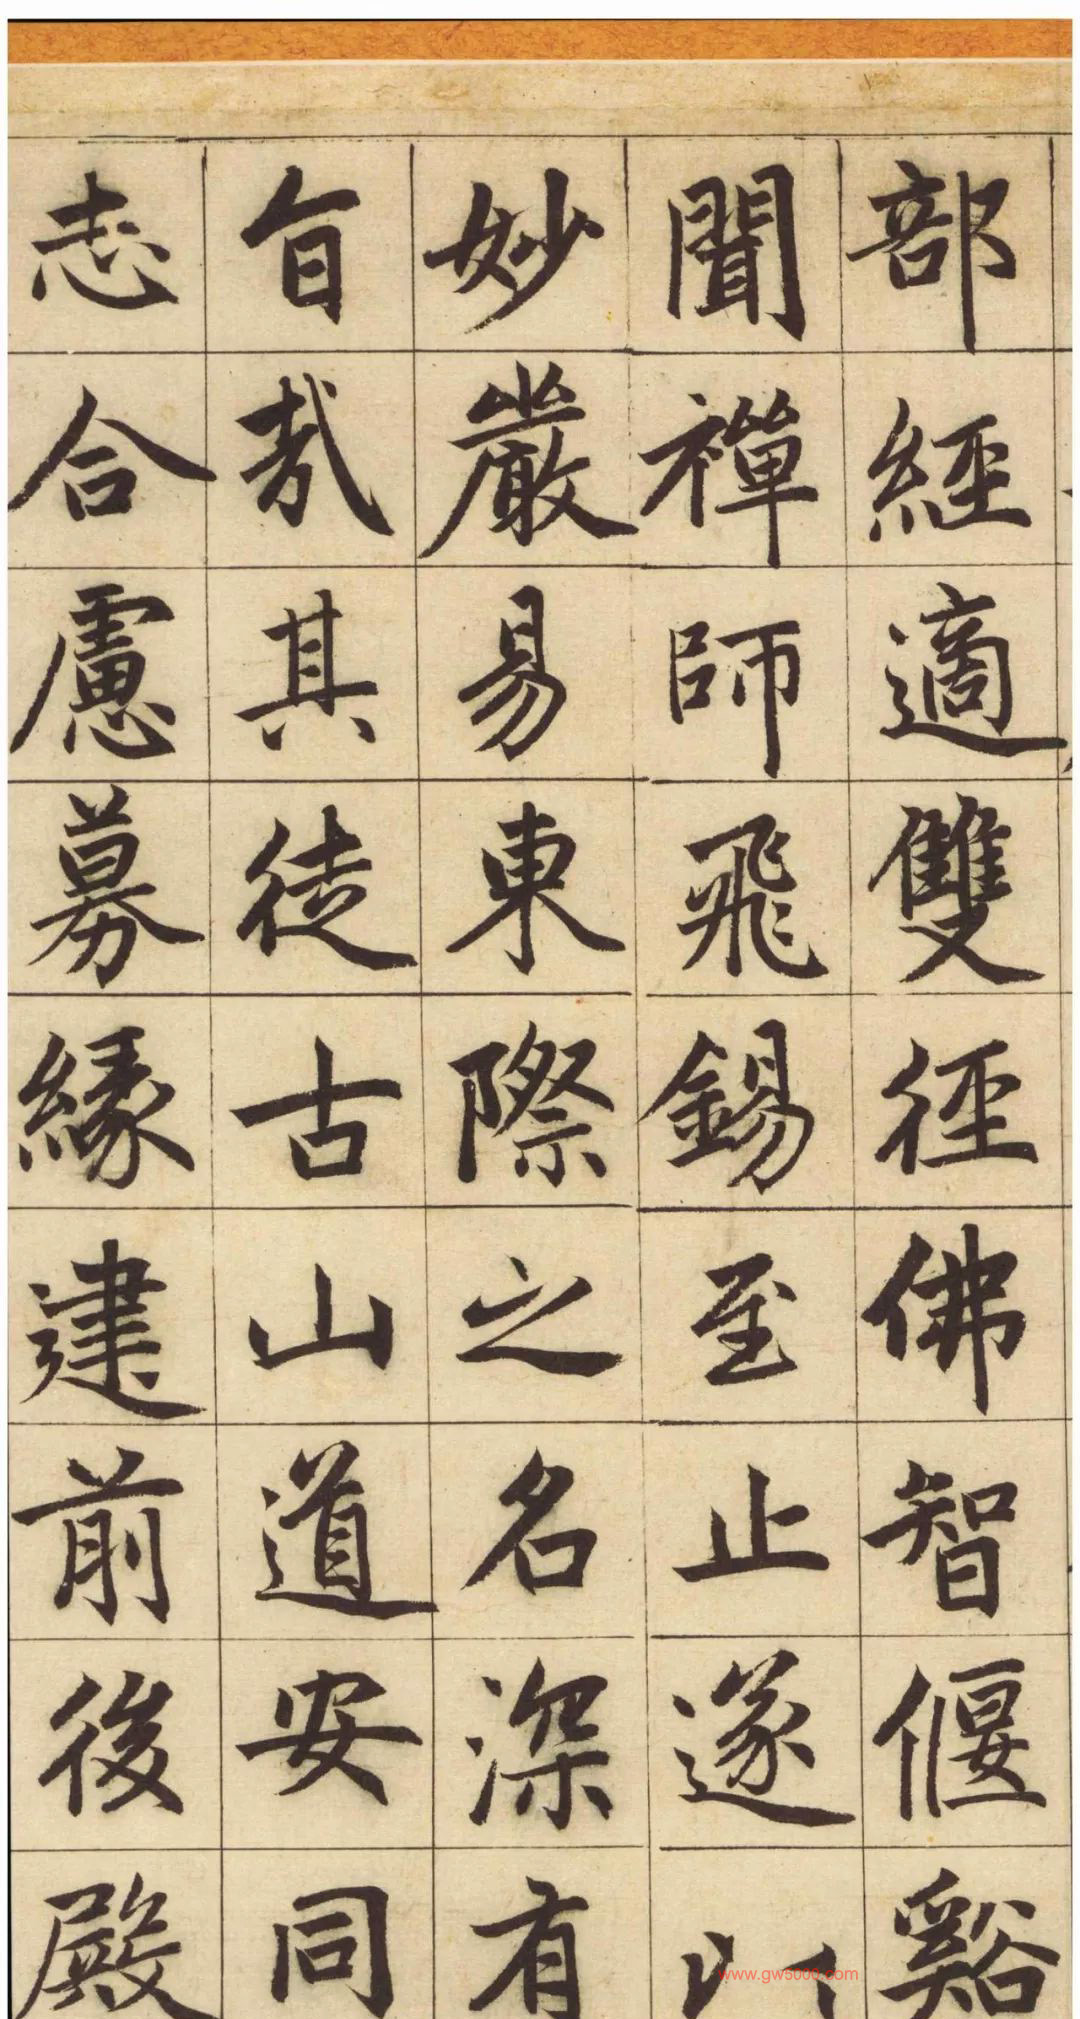 部經適雙徑佛智偃谿
聞禪師飛錫至止遂以
妙嚴易東際之名深有
旨哉其徒古山道安同
志合慮募緣建前後殿
www.gw5000.com